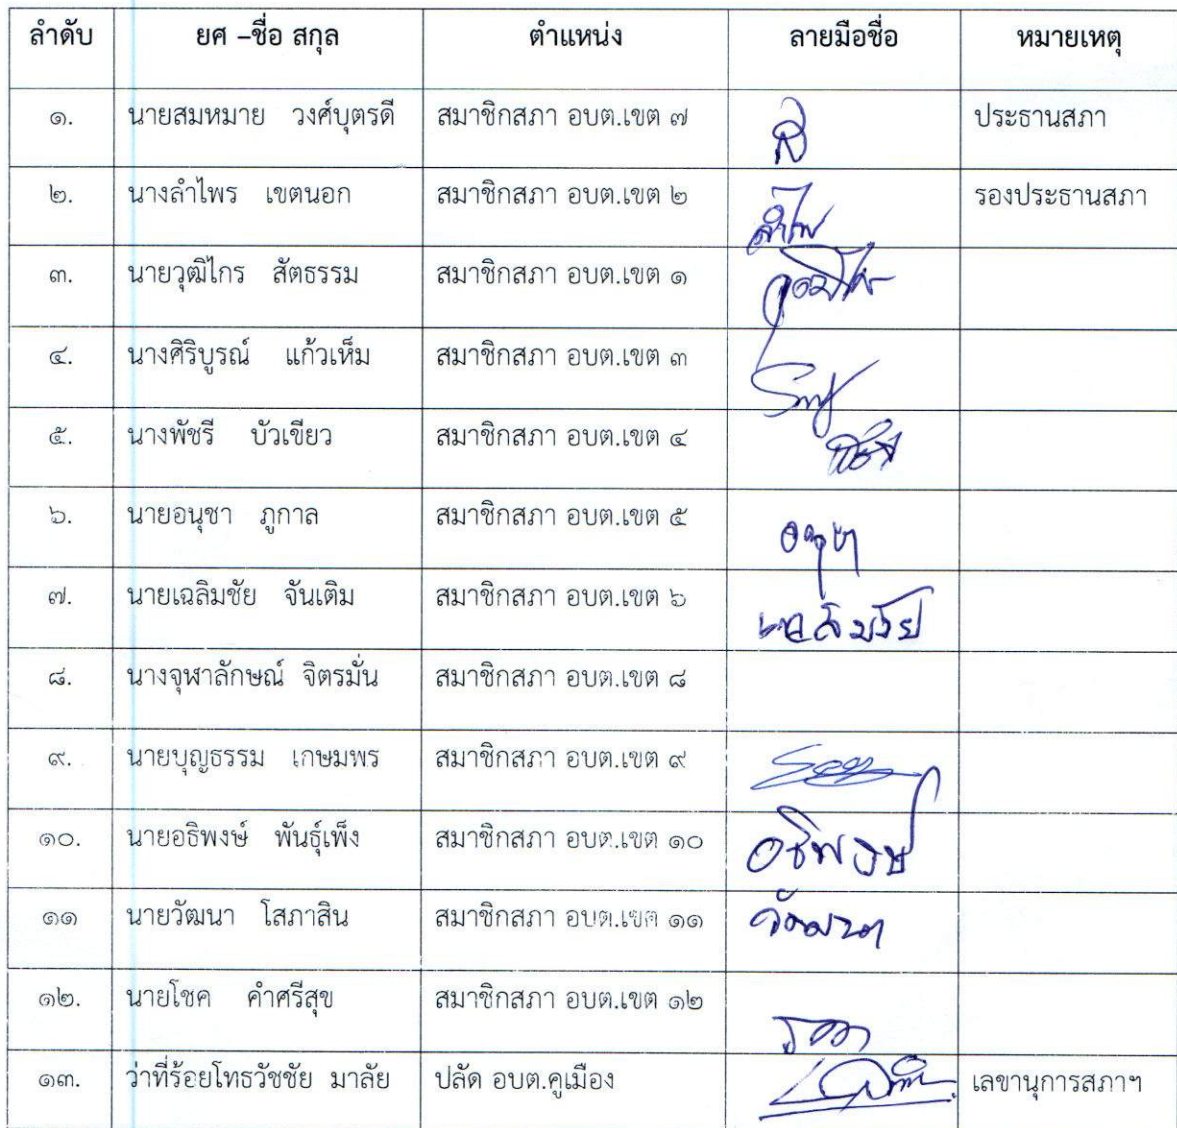 ลำดับ ยศ –ชื่อ สกุล ตำแหน่ง ลายมือชื่อ หมายเหตุ
๑. นายสมหมาย วงศ์บุตรดี สมาชิกสภา อบต.เขต ๗ ประธานสภา
๒. นางลำไพร เขตนอก สมาชิกสภา อบต.เขต ๒ ลำไพ รองประธานสภา
๓. นายวุฒิไกร สัตธรรม สมาชิกสภา อบต.เขต ๑
๔. นางศิริบูรณ์ แก้วเห็ม สมาชิกสภา อบต.เขต ๓
๕. นางพัชรี บัวเขียว สมาชิกสภา อบต.เขต ๔
๖. นายอนุชา ภูกาล สมาชิกสภา อบต.เขต ๕ อนุชา
๗. นายเฉลิมชัย จันเติม สมาชิกสภา อบต.เขต ๖ เฉลิมชัย
๘. นางจุฬาลักษณ์ จิตรมั่น สมาชิกสภา อบต.เขต ๘
๙. นายบุญธรรม เกษมพร สมาชิกสภา อบต.เขต ๙
๑๐. นายอธิพงษ์ พันธุ์เพ็ง สมาชิกสภา อบต.เขต ๑๐ อธิพงษ์
๑๑ นายวัฒนา โสภาสิน สมาชิกสภา อบต.เขต ๑๑ วัฒนา
๑๒. นายโชค คำศรีสุข สมาชิกสภา อบต.เขต ๑๒
๑๓. ว่าที่ร้อยโทธวัชชัย มาลัย ปลัด อบต.คูเมือง เลขานุการสภาฯ